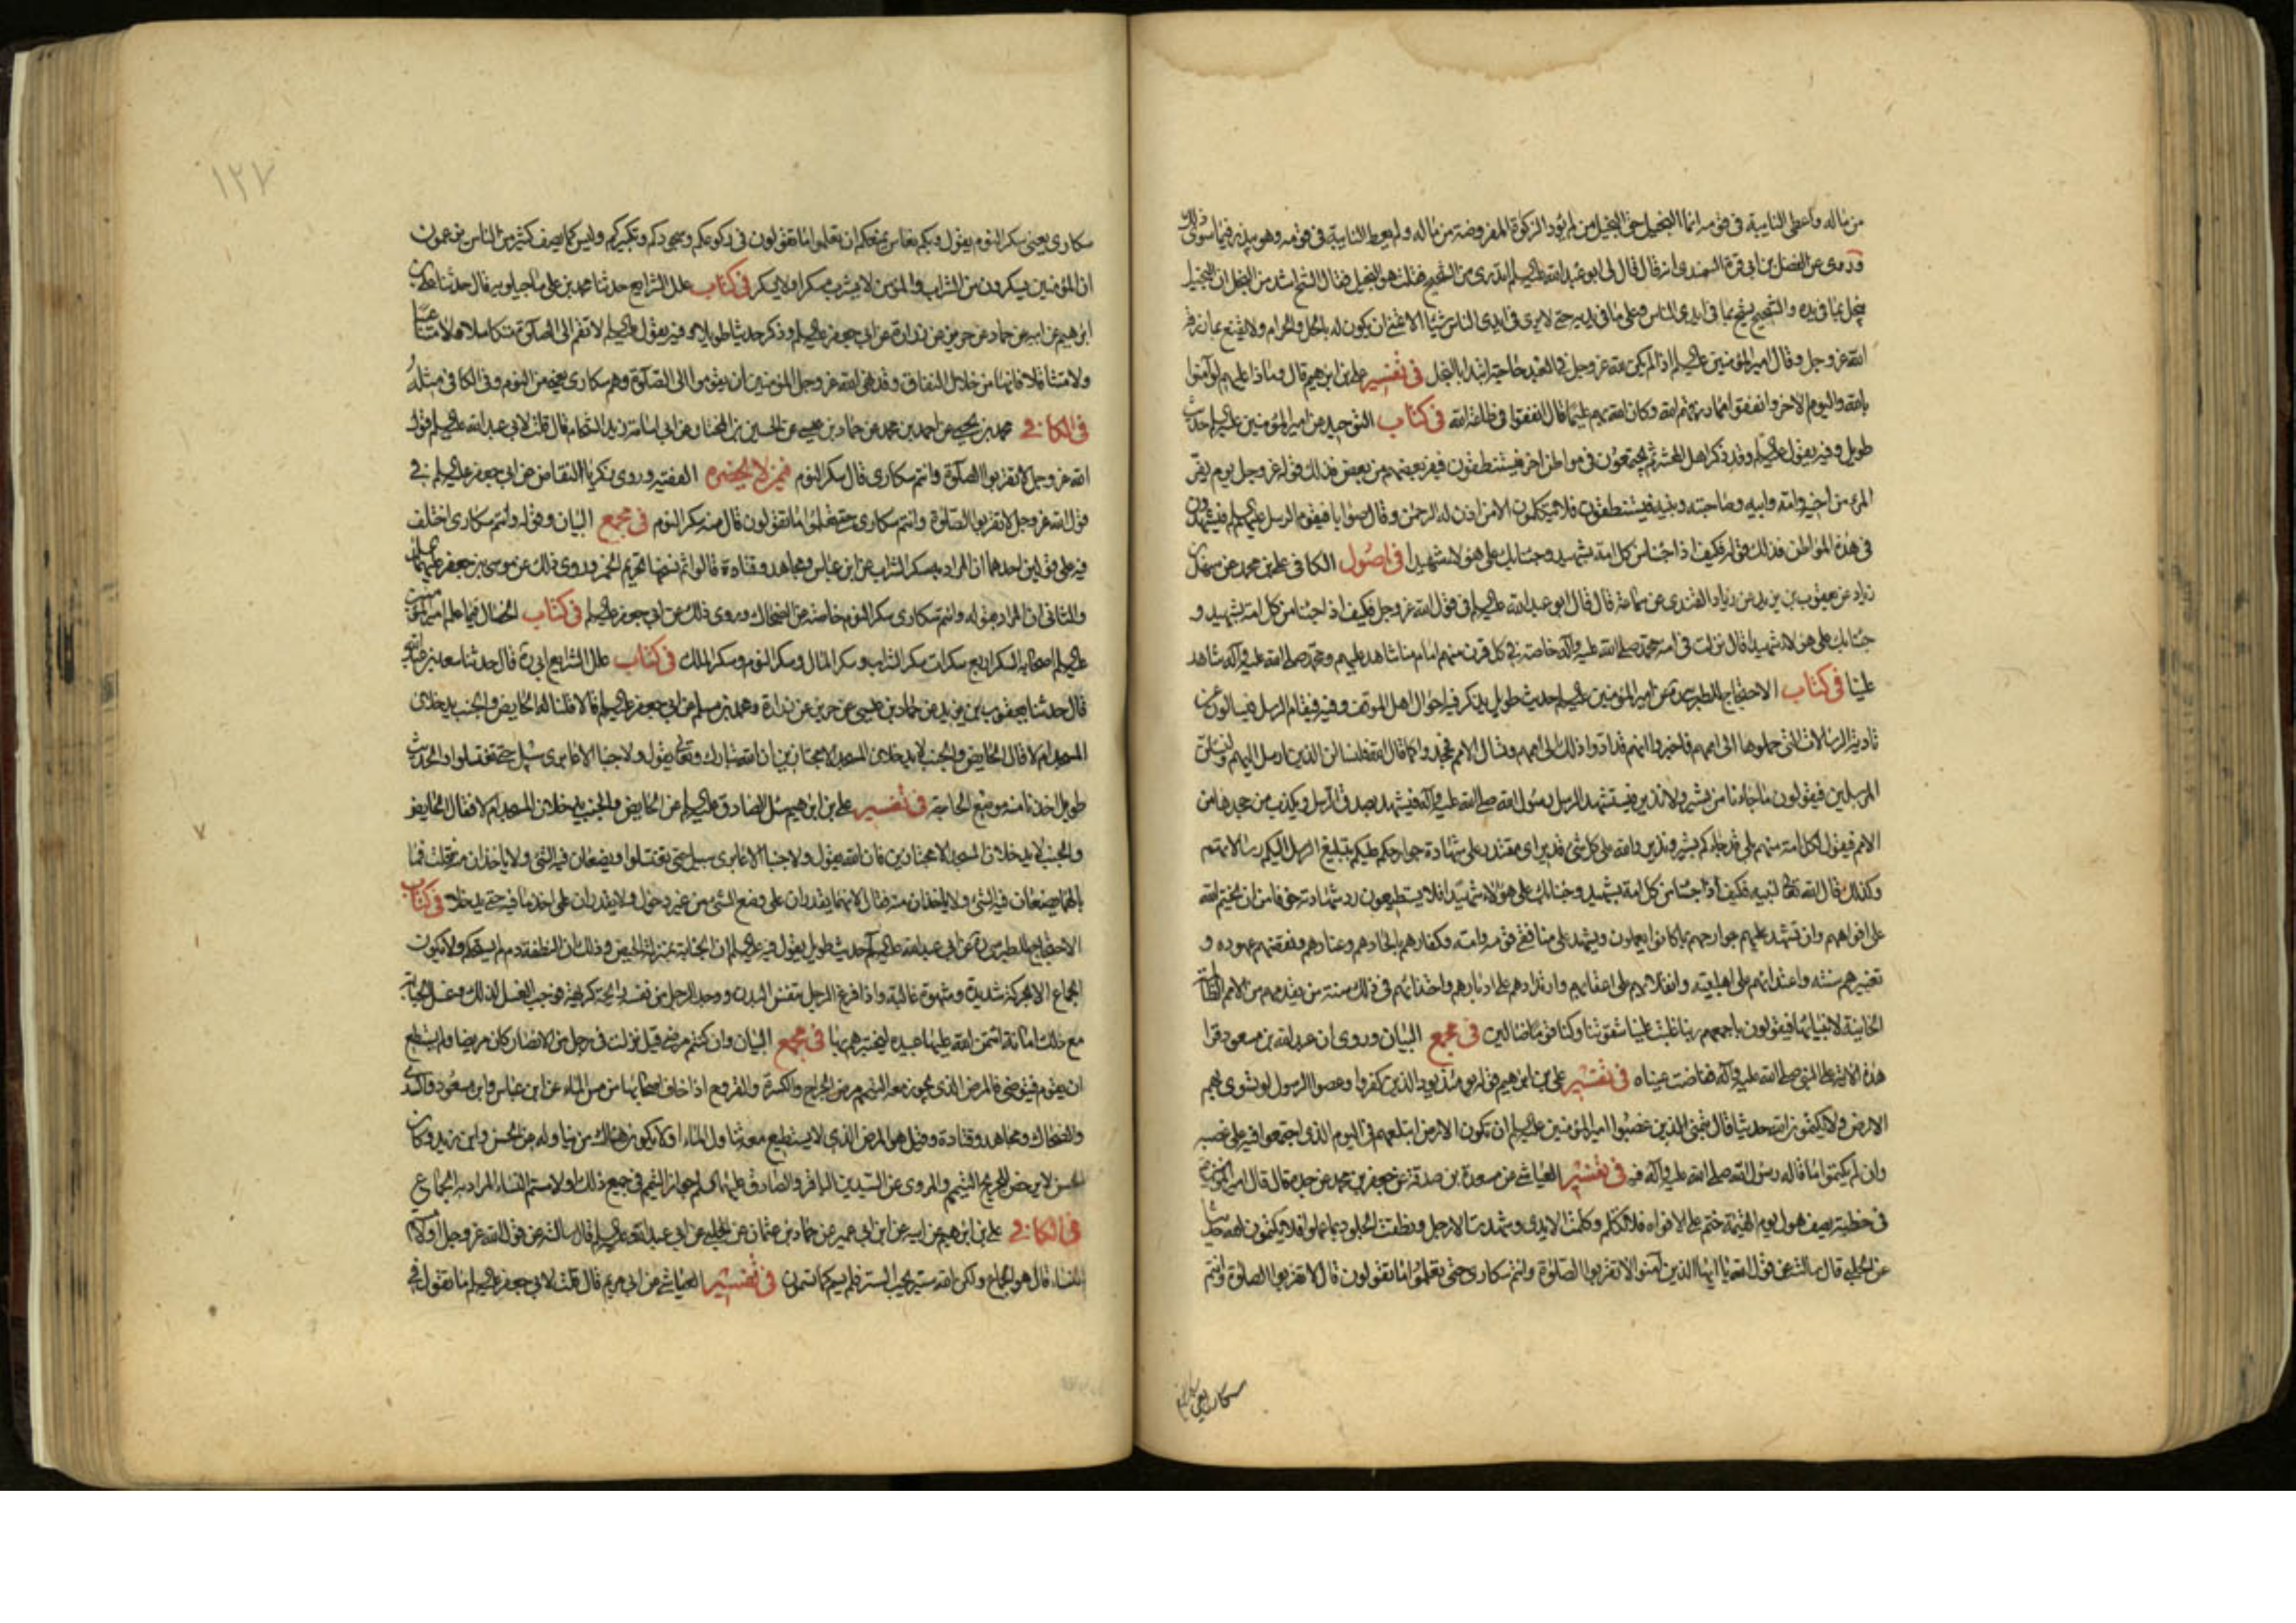 من ماله واعطى النايبة فى قومه انما البخيل حق البخيل من لم يؤد الزكوة المفروضة من ماله ولم يعط النايبة فى قومه وهو يبذر فيما سوى ذلك
وروى عن الفضل بن ابى قرة السمندى انه قال قال لى ابو عبد الله عليه السلم اتدرى من الشحيح فقلت هو البخيل فقال الشح اشد من البخل ان البخيل
يبخل بما فى يده والشحيح يشح بما فى ايدى الناس وعلى ما فى يديه حتى لا يرى فى ايدى الناس شيئا الا تمنى ان يكون له بالحل والحرام ولا يقنع بما رزقه
الله عز وجل وقال امير المؤمنين عليه السلم اذا لم يكن لله عز وجل فى العبد حاجة ابتلاه بالبخل فى تفسير على بن ابرهيم قال وماذا عليهم لو آمنوا
بالله واليوم الاخر وانفقوا مما رزقهم الله وكان الله بهم عليما قال انفقوا فى طاعة الله فى كتاب التوحيد عن امير المؤمنين عليه السلم حديث
طويل وفيه يقول عليه السلم وقد ذكر اهل المحشر ثم يجتمعون فى مواطن اخر فيستنطقون فيفر بعضهم من بعض فذلك قوله عز وجل يوم يفر
المرء من أخيه وامه وابيه وصاحبته وبنيه فيستنطقون فلا يتكلمون الا من اذن له الرحمن وقال صوابا فيقوم الرسل عليهم السلم فيشهدون
فى هذه المواطن فذلك قوله فكيف اذا جئنا من كل امة بشهيد وجئنا بك على هؤلاء شهيدا فى اصول الكافى على بن محمد عن سهل بن
زياد عن يعقوب بن يزيد عن زياد القندى عن سماعة قال قال ابو عبد الله عليه السلم فى قول الله عز وجل فكيف اذا جئنا من كل امة بشهيد و
جئنا بك على هؤلاء شهيدا قال نزلت فى امة محمد صلى الله عليه وآله خاصة فى كل قرن منهم امام منا شاهد عليهم ومحمد صلى الله عليه وآله شاهد
علينا فى كتاب الاحتجاج للطبرسى ره عن امير المؤمنين عليه السلم حديث طويل يذكر فيه احوال اهل الموقف وفيه فيقام الرسل فيسألون عن
تادية الرسالات التى حملوها الى اممهم فاخبروا انهم قد ادوا ذلك الى اممهم وتسأل الامم فيجحدوا كما قال الله فلنسألن الذين ارسل اليهم ولنسألن
المرسلين فيقولون ما جاءنا من بشير ولا نذير فيستشهد الرسل رسول الله صلى الله عليه وآله فيشهد بصدق الرسل ويكذب من جحدها من
الامم فيقول لكل امة منهم بلى قد جاءكم بشير ونذير والله على كل شئ قدير اى مقتدر على شهادة جوارحكم عليكم بتبليغ الرسل اليكم رسالاتهم
وكذلك قال الله تعالى لنبيه فكيف اذا جئنا من كل امة بشهيد وجئنا بك على هؤلاء شهيدا فلا يستطيعون رد شهادته خوفا من ان يختم الله
على افواههم وان تشهد عليهم جوارحهم بما كانوا يعملون ويشهد على منافقى قومه وامته وكفارهم بالحادهم وعنادهم ونقضهم عهوده و
تغييرهم سنته واعتدائهم على اهل بيته وانقلابهم على اعقابهم وارتدادهم على ادبارهم واحتذائهم فى ذلك سنة من تقدمهم من الامم الظالمة
الخائنة لانبيائها فيقولون باجمعهم ربنا غلبت علينا شقوتنا وكنا قوما ضالين فى مجمع البيان وروى ان عبد الله بن مسعود قرا
هذه الآية على النبى صلى الله عليه وآله ففاضت عيناه فى تفسير على بن ابرهيم قوله يومئذ يود الذين كفروا وعصوا الرسول لو تسوى بهم
الارض ولا يكتمون الله حديثا قال يتمنى الذين غصبوا امير المؤمنين عليه السلم ان تكون الارض ابتلعتهم فى اليوم الذى اجتمعوا فيه على غصبه
وان لم يكتموا ما قاله رسول الله صلى الله عليه وآله فيه فى تفسير العياشى عن مسعدة بن صدقة عن جعفر بن محمد عن جده قال قال امير المؤمنين
فى خطبته يصف هول يوم القيمة ختم على الافواه فلا تكلم وكلمت الايدى وشهدت الارجل ونطقت الجلود بما عملوا فلا يكتمون الله حديثا
عن الحلبى قال سالته عن قول الله يا ايها الذين آمنوا لا تقربوا الصلوة وانتم سكارى حتى تعلموا ما تقولون قال لا تقربوا الصلوة وانتم
سكارى يعنى
١٢٧
سكارى يعنى سكر النوم يقول وبكم نعاس يمنعكم ان تعلموا ما تقولون فى ركوعكم وسجودكم وتكبيركم وليس كما يصف كثير من الناس يزعمون
ان المؤمنين يسكرون من الشراب والمؤمن لا يشرب مسكرا ولا يسكر فى كتاب علل الشرايع حدثنا محمد بن على ماجيلويه قال حدثنا على بن
ابرهيم عن ابيه عن حماد عن حريز عن زرارة عن ابى جعفر عليه السلم وذكر حديثا طويلا وفيه يقول عليه السلم لا تقم الى الصلوة متكاسلا ولا متناعسا
ولا متثاقلا فانها من خلال النفاق وقد نهى الله عز وجل المؤمنين ان يقوموا الى الصلوة وهم سكارى يعنى من النوم وفى الكافى مثله
فى الكافى محمد بن يحيى عن احمد بن محمد عن حماد بن عيسى عن الحسين بن المختار عن ابى اسامة زيد الشحام قال قلت لابى عبد الله عليه السلم قول
الله عز وجل لا تقربوا الصلوة وانتم سكارى قال سكر النوم فيمن لا يحضره الفقيه وروى زكريا النقاض عن ابى جعفر عليه السلم فى
قول الله عز وجل لا تقربوا الصلوة وانتم سكارى حتى تعلموا ما تقولون قال منه سكر النوم فى مجمع البيان وقوله وانتم سكارى اختلف
فيه على قولين احدهما ان المراد به سكر الشراب عن ابن عباس ومجاهد وقتادة قالوا ثم نسخها تحريم الخمر وروى ذلك عن موسى بن جعفر عليهما السلم
والثانى ان المراد بقوله وانتم سكارى سكر النوم خاصة عن الضحاك وروى ذلك عن ابى جعفر عليه السلم فى كتاب الخصال فيما علم امير المؤمنين
عليه السلم اصحابه السكر اربع سكرات سكر الشراب وسكر المال وسكر النوم وسكر الملك فى كتاب علل الشرايع ابى ره قال حدثنا سعد بن عبد الله
قال حدثنا يعقوب بن يزيد عن حماد بن عيسى عن حريز عن زرارة ومحمد بن مسلم عن ابى جعفر عليه السلم قالا قلنا له الحايض والجنب يدخلان
المسجد ام لا قال الحايض والجنب لا يدخلان المسجد الا مجتازين ان الله تبارك وتعالى يقول ولا جنبا الا عابرى سبيل حتى تغتسلوا والحديث
طويل اخذنا منه موضع الحاجة فى تفسير على بن ابرهيم سئل الصادق عليه السلم عن الحايض والجنب يدخلان المسجد ام لا فقال الحايض
والجنب لا يدخلان المسجد الا مجتازين فان الله يقول ولا جنبا الا عابرى سبيل حتى تغتسلوا ويضعان فيه الشئ ولا ياخذان منه فقلت فما
بالهما يضعان فيه الشئ ولا ياخذان منه فقال لانهما يقدران على وضع الشئ من غير دخول ولا يقدران على اخذ ما فيه حتى يدخلا فى كتاب
الاحتجاج للطبرسى ره عن ابى عبد الله عليه السلم حديث طويل يقول فيه عليه السلم ان الجنابة بمنزلة الحيض وذلك ان النطفة دم لم يستحكم ولا يكون
الجماع الا بحركة شديدة وشهوة غالبة واذا فرغ الرجل تنفس البدن ووجد الرجل من نفسه رائحة كريهة فوجب الغسل لذلك وغسل الجنابة
مع ذلك امانة ائتمن الله عليها عبيده ليختبرهم بها فى مجمع البيان وان كنتم مرضى قيل نزلت فى رجل من الانصار كان مريضا ولم يستطع
ان يقوم فيتوضى فالمرض الذى يجوز معه التيمم مرض الجراح والكسر والقروح اذا خاف اصحابها من مس الماء عن ابن عباس وابن مسعود والسدى
والضحاك ومجاهد وقتادة وقيل هو المرض الذى لا يستطيع معه تناول الماء او لا يكون هناك من يناوله عن الحسن وابن زيد وكان
الحسن لا يرخص للجريح التيمم والمروى عن السيدين الباقر والصادق عليهما السلم جواز التيمم فى جميع ذلك او لامستم النساء المراد به الجماع
فى الكافى على بن ابرهيم عن ابيه عن ابن ابى عمير عن حماد بن عثمان عن الحلبى عن ابى عبد الله عليه السلم قال سالته عن قول الله عز وجل او لامستم
النساء قال هو الجماع ولكن الله ستير يحب الستر فلم يسم كما تسمون فى تفسير العياشى عن ابى مريم قال قلت لابى جعفر عليه السلم ما تقول فى